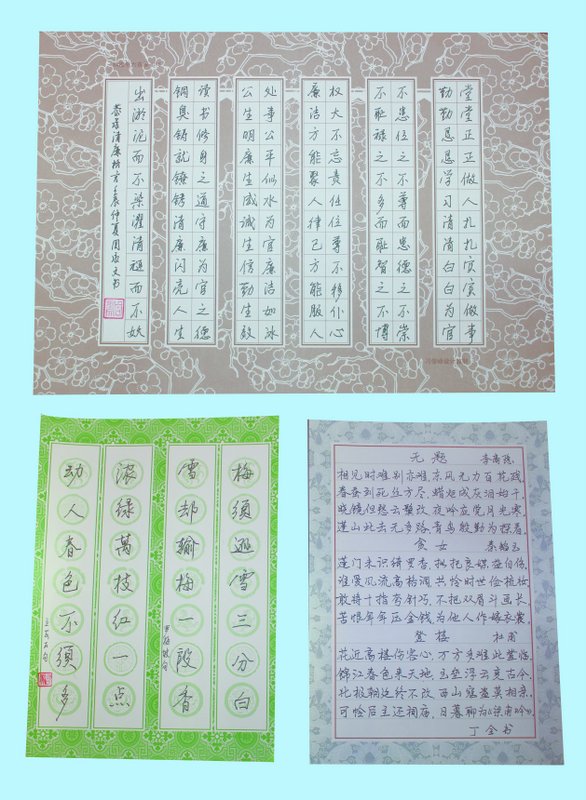 堂堂正正做人扎扎实实做事
勤勤恳恳学习清清白白为官
不患位之不尊而患德之不崇
不耻禄之不多而耻智之不博
权大不忘责任位尊不移仆心
廉洁方能聚人律己方能服人
处事公平似水为官廉洁如冰
公生明廉生威诚生信勤生效
读书修身之道守廉为官之德
铜臭铸就镣铐清廉闪亮人生
出淤泥而不染濯清涟而不妖
清廉格言壬辰仲夏周文书
梅须逊雪三分白
雪却输梅一段香
浓绿萬枝红一点
动人春色不须多
王安石句
无题 李商隐
相见时难别亦难,东风无力百花残
春蚕到死丝方尽,蜡炬成灰泪始干
晓镜但愁云鬓改 夜吟应觉月光寒
蓬山此去无多路,青鸟殷勤为探看
贫女 秦韬玉
蓬门未识绮罗香,拟托良媒益自伤
谁爱风流高格调 共怜时世俭梳妆
敢将十指夸针巧,不把双眉斗画长
苦恨年年压金线 为他人作嫁衣裳
登楼 杜甫
花近高楼伤客心 万方多难此登临
锦江春色来天地 玉垒浮云变古今
北极朝廷终不改 西山寇盗莫相亲
可怜后主还祠庙,日暮聊为《梁甫吟》
丁全书